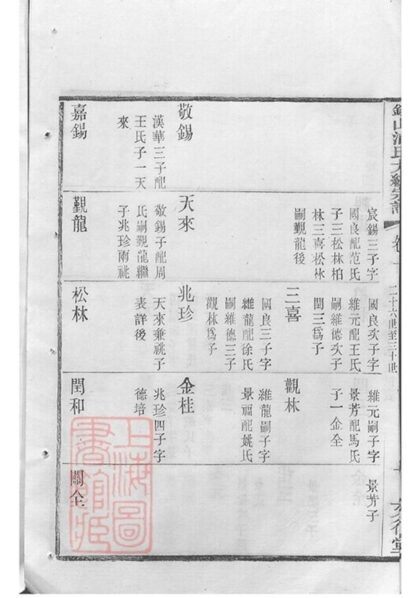 宸錫三子字
國良配范氏
子三松林柏
林三喜松林
嗣觀龍後
敬錫
漢華三子配
王氏子一天
來
嘉錫
天來
敬錫子配周
氏嗣觀龍繼
子兆珍兩祧
觀龍
國良次子字
維元配王氏
嗣維德次子
閏三爲子
三喜
國良三子字
維龍配徐氏
嗣維德三子
觀林爲子
兆珍
天來兼祧子
表詳後
松林
維元嗣子字
景芳配馬氏
子一金全
觀林
維龍嗣子字
景福配姚氏
金桂
兆珍四子字
德培
閏和
景芳子
關全
二十六世至三十世
上海圖
書館藏